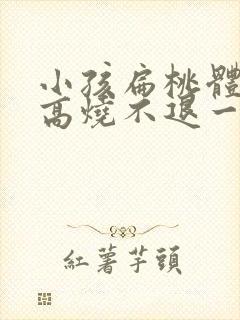 小孩扁桃體
高燒不退一
紅薯芋頭